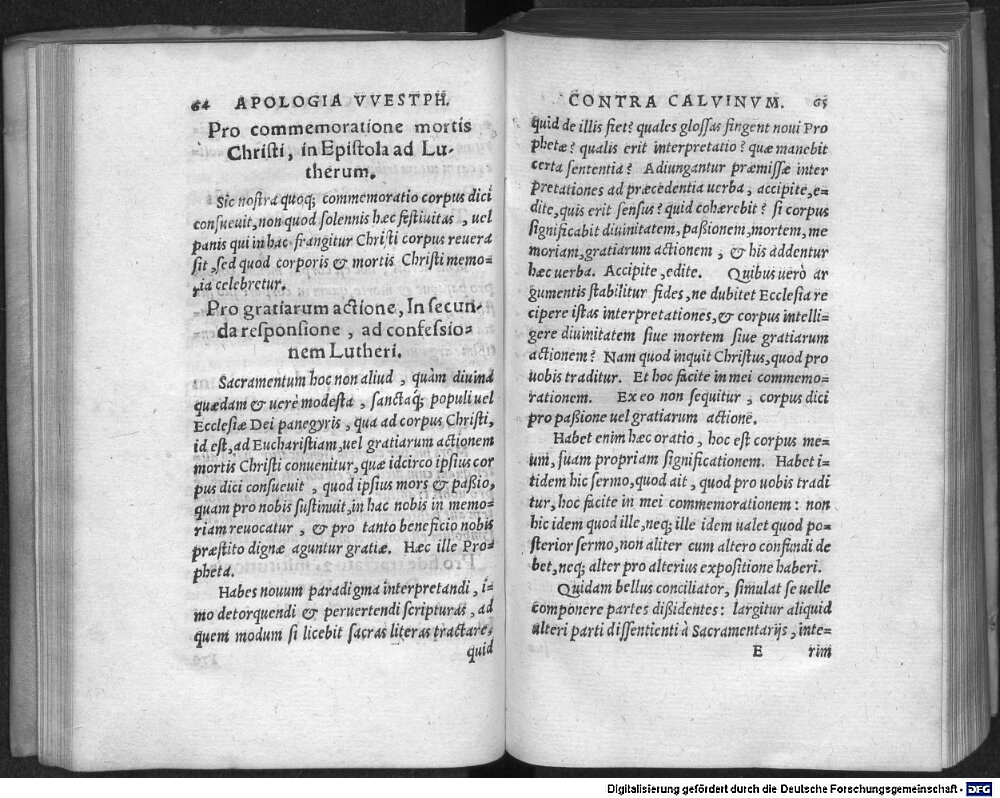 64 APOLOGIA VVESTPH.
Pro commemoratione mortis
Christi, in Epistola ad Lu-
therum.
Sic nostra quoq; commemoratio corpus dici
consueuit, non quod solennis hæc festiuitas, uel
panis qui in hac frangitur Christi corpus reuera
sit, sed quod corporis & mortis Christi memo-
ria celebretur.
Pro gratiarum actione, In secun-
da responsione, ad confessio-
nem Lutheri.
Sacramentum hoc non aliud, quàm diuina
quædam & uerè modesta, sanctaq́; populi uel
Ecclesiæ Dei panegyris, qua ad corpus Christi,
id est, ad Eucharistiam, uel gratiarum actionem
mortis Christi conuenitur, quæ idcirco ipsius cor
pus dici consueuit, quod ipsius mors & paßio,
quam pro nobis sustinuit, in hac nobis in memo-
riam reuocatur, & pro tanto beneficio nobis
præstito dignæ aguntur gratiæ. Hæc ille Pro-
pheta.
Habes nouum paradigma interpretandi, i-
mo detorquendi & peruertendi scripturas, ad
quem modum si licebit sacras literas tractare,
quid
CONTRA CALVINVM. 65
quid de illis fiet? quales glossas fingent noui Pro
phetæ? qualis erit interpretatio? quæ manebit
certa sententia? Adiungantur præmissæ inter
pretationes ad præcedētia uerba, accipite, e-
dite, quis erit sensus? quid cohærebit? si corpus
significabit diuinitatem, paßionem, mortem, me
moriam, gratiarum actionem, & his addentur
hæc uerba. Accipite, edite. Quibus uerò ar
gumentis stabilitur fides, ne dubitet Ecclesia re
cipere istas interpretationes, & corpus intelli-
gere diuinitatem siue mortem siue gratiarum
actionem? Nam quod inquit Christus, quod pro
uobis traditur. Et hoc facite in mei commemo-
rationem. Ex eo non sequitur, corpus dici
pro paßione uel gratiarum actionē.
Habet enim hæc oratio, hoc est corpus me-
um, suam propriam significationem. Habet i-
tidem hic sermo, quod ait, quod pro uobis tradi
tur, hoc facite in mei commemorationem: non
hic idem quod ille, neq; ille idem ualet quod po-
sterior sermo, non aliter cum altero confundi de
bet, neq; alter pro alterius expositione haberi.
Quidam bellus conciliator, simulat se uelle
componere partes dißidentes: largitur aliquid
alteri parti dissentienti à Sacramentarijs, inte-
E rim
Digitalisierung gefördert durch die Deutsche Forschungsgemeinschaft - DFG